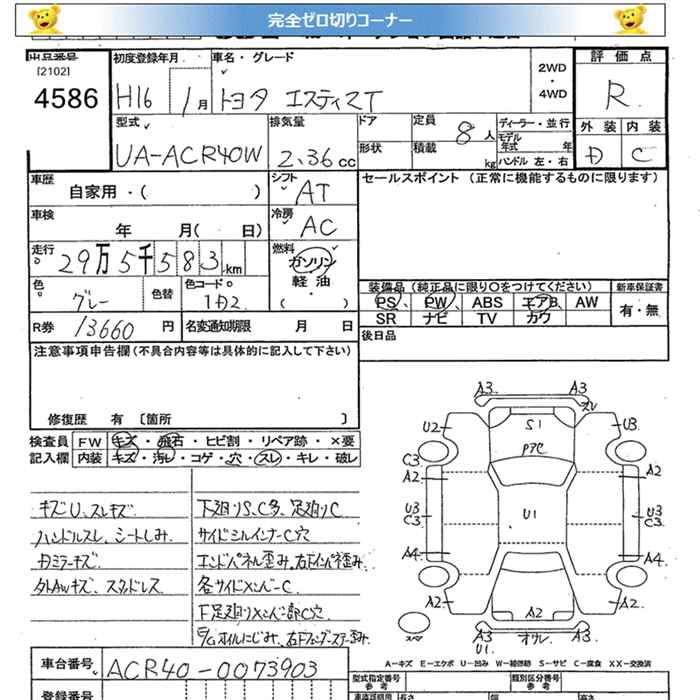 完全ゼロ切りコーナー
出品番号
[2102]
4586
初度登録年月
H16 1月
車名・グレード
トヨタ エスティマT
2WD
・
4WD
評価点
R
外装 内装
D C
型式
UA-ACR40W
排気量
2.36 cc
ドア
形状
定員
8人
積載 kg
ディーラー・並行
モデル年式 年
ハンドル 左・右
車歴
自家用・( )
シフト
AT
セールスポイント (正常に機能するものに限ります)
車検
年 月( 日)
冷房
AC
走行
29万5千583km
燃料
ガソリン
軽油
( ・ )
色
グレー
色替
色コード
1D2
装備品 (純正品に限り○をつけてください)
新車保証書
PS PW ABS エアB AW
SR ナビ TV カワ
有・無
R券 13660 円
名変通知期限 月 日
後日品
注意事項申告欄 (不具合内容等は具体的に記入して下さい)
修復歴 有 [箇所 ]
検査員記入欄
FW キズ・飛石・ヒビ割・リペア跡・×要
内装 キズ・汚レ・コゲ・穴・スレ・キレ・破レ
キズU、スレキズ
ハンドルスレ、シートしみ
Dミラーキズ
外AWキズ、スタッドレス
下廻りS、C多、足廻りC
サイドシルインナーC穴
エンドパネル歪み、右下インパネ歪み
各サイドメンバーC
下足廻りメンバー部C穴
E/Gオイルにじみ、右下フェンダーステー歪み
A3 A3
S1
U2 U3
C3 A2 A2
U3 C3 U1 U3 C3
A4 A4
A2 A2 A2
A3 U1 A3
A-キズ E-エクボ U-凹み W-補修跡 S-サビ C-腐食 XX-交換済
車台番号
ACR40-0073903
登録番号
型式指定番号 参考
類別区分番号 参考